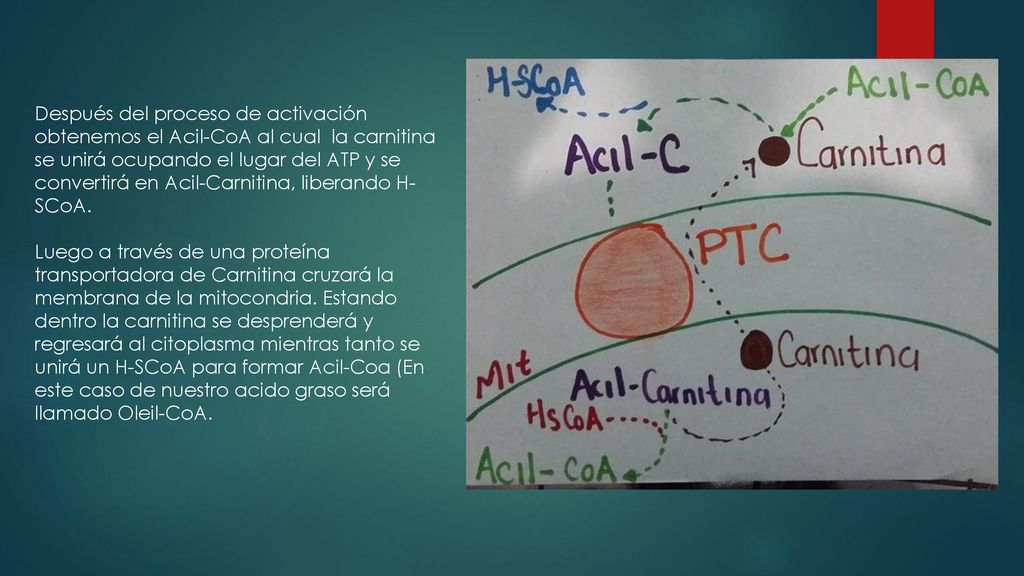 Después del proceso de activación
obtenemos el Acil-CoA al cual la carnitina
se unirá ocupando el lugar del ATP y se
convertirá en Acil-Carnitina, liberando H-
SCoA.
Luego a través de una proteína
transportadora de Carnitina cruzará la
membrana de la mitocondria. Estando
dentro la carnitina se desprenderá y
regresará al citoplasma mientras tanto se
unirá un H-SCoA para formar Acil-Coa (En
este caso de nuestro acido graso será
llamado Oleil-CoA.
H-SCoA
Acil-CoA
Acil-C
Carnitina
PTC
Carnitina
Mit
Acil-Carnitina
HsCoA
Acil-CoA